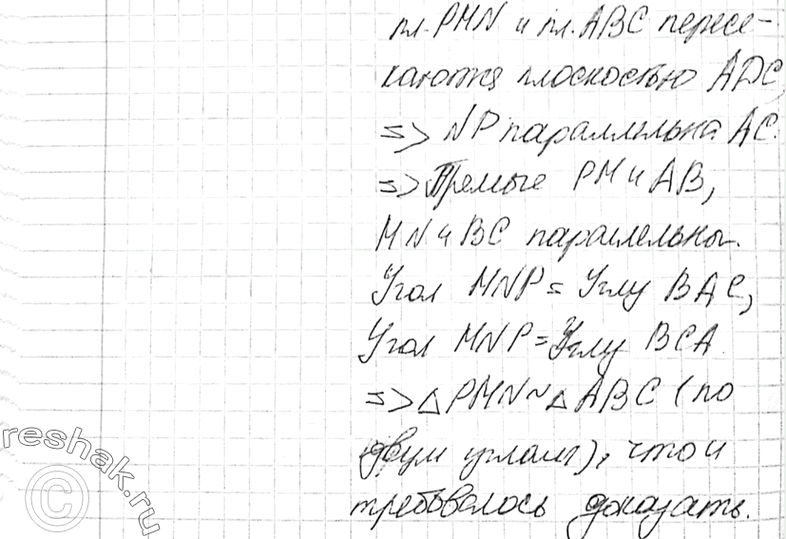 пл. PMN и пл. ABC пересе-
каются плоскостью ADC,
=> NP параллельна AC.
=> Прямые PM и AB,
MN и BC параллельны.
Угол MNP = Углу BAC,
Угол MNP = Углу BCA
=> △PMN ~ △ABC (по
двум углам), что и
требовалось доказать.
© reshak.ru